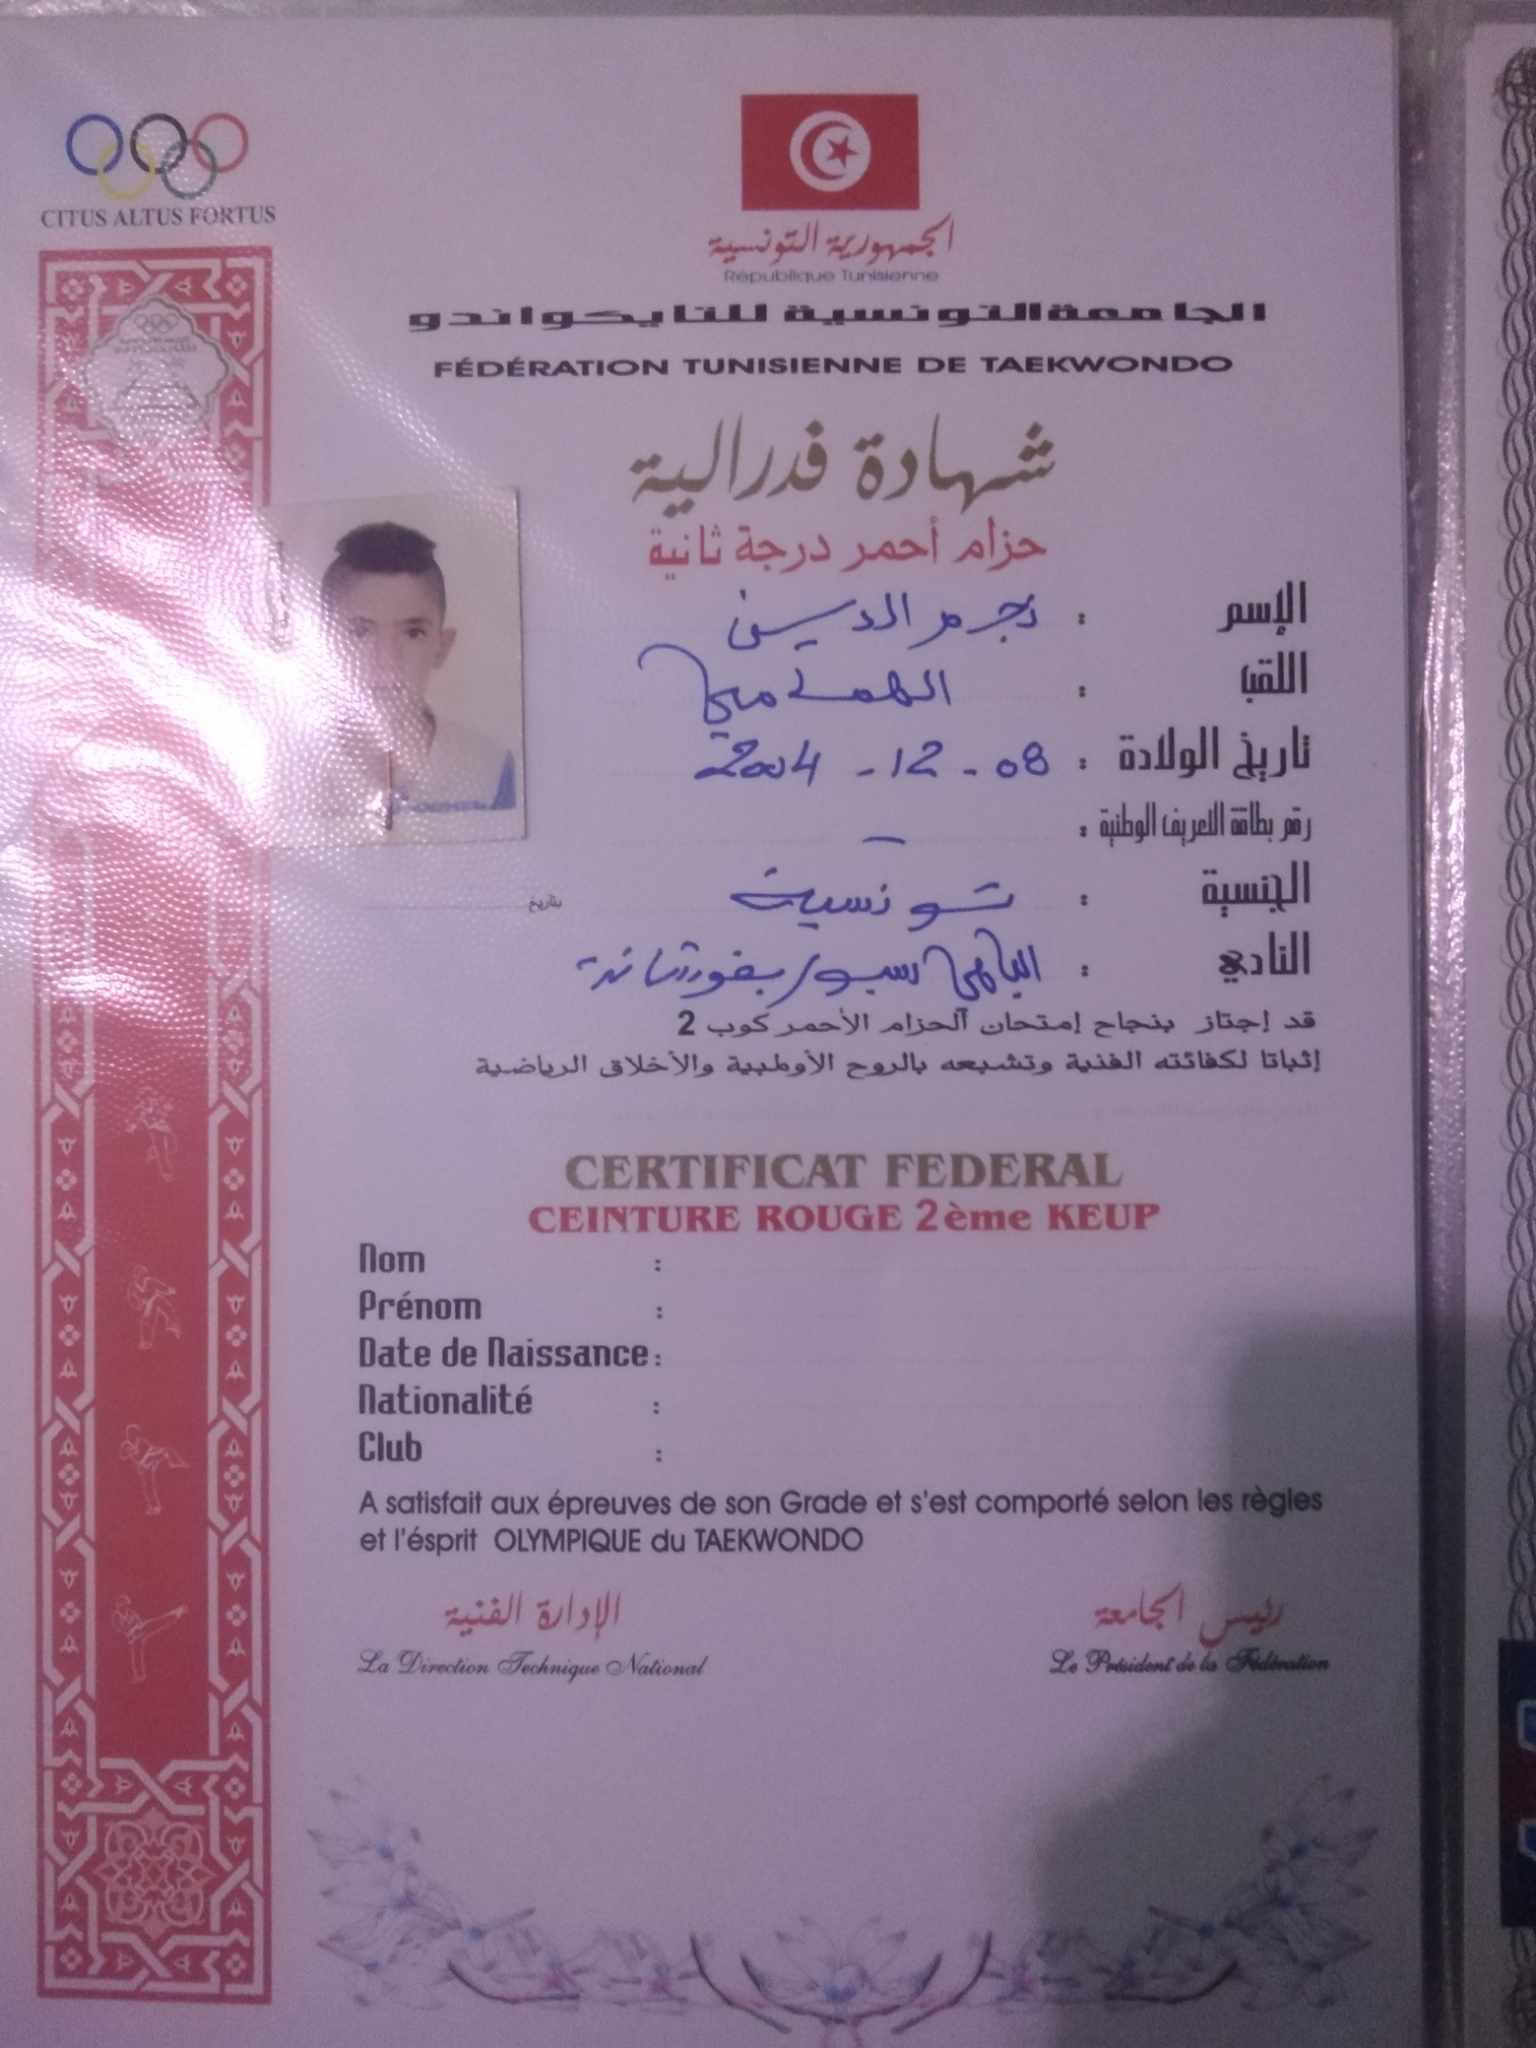 CITUS ALTUS FORTUS
الجمهورية التونسية
République Tunisienne
الجامعة التونسية للتايكواندو
FÉDÉRATION TUNISIENNE DE TAEKWONDO
شهادة فدرالية
حزام أحمر درجة ثانية
الإسم : نجم الدين
اللقب : الهمامي
تاريخ الولادة : 08 - 12 - 2004
رقم بطاقة التعريف الوطنية : -
بتاريخ
الجنسية : تونسية
النادي :
قد إجتاز بنجاح إمتحان الحزام الأحمر كوب 2
إثباتا لكفائته الفنية وتشبعه بالروح الأولمبية والأخلاق الرياضية
CERTIFICAT FEDERAL
CEINTURE ROUGE 2ème KEUP
Nom :
Prénom :
Date de Naissance :
Nationalité :
Club :
A satisfait aux épreuves de son Grade et s'est comporté selon les règles
et l'ésprit OLYMPIQUE du TAEKWONDO
رئيس الجامعة
Le Président de la Fédération
الإدارة الفنية
La Direction Technique National